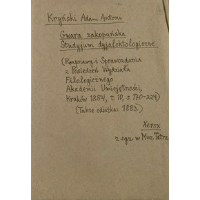 Kryński Adam Antoni
Gwara zakopańska
Studyjum dyjalektologiczne
(Rozprawy i Sprawozdania
z Posiedzeń Wydziału
Filologicznego
Akademii Umiejętności,
Kraków 1884, t. X, s. 170-224)
(Także odbitka 1883.)
Xerox
z egz. w Muz. Tatrz.